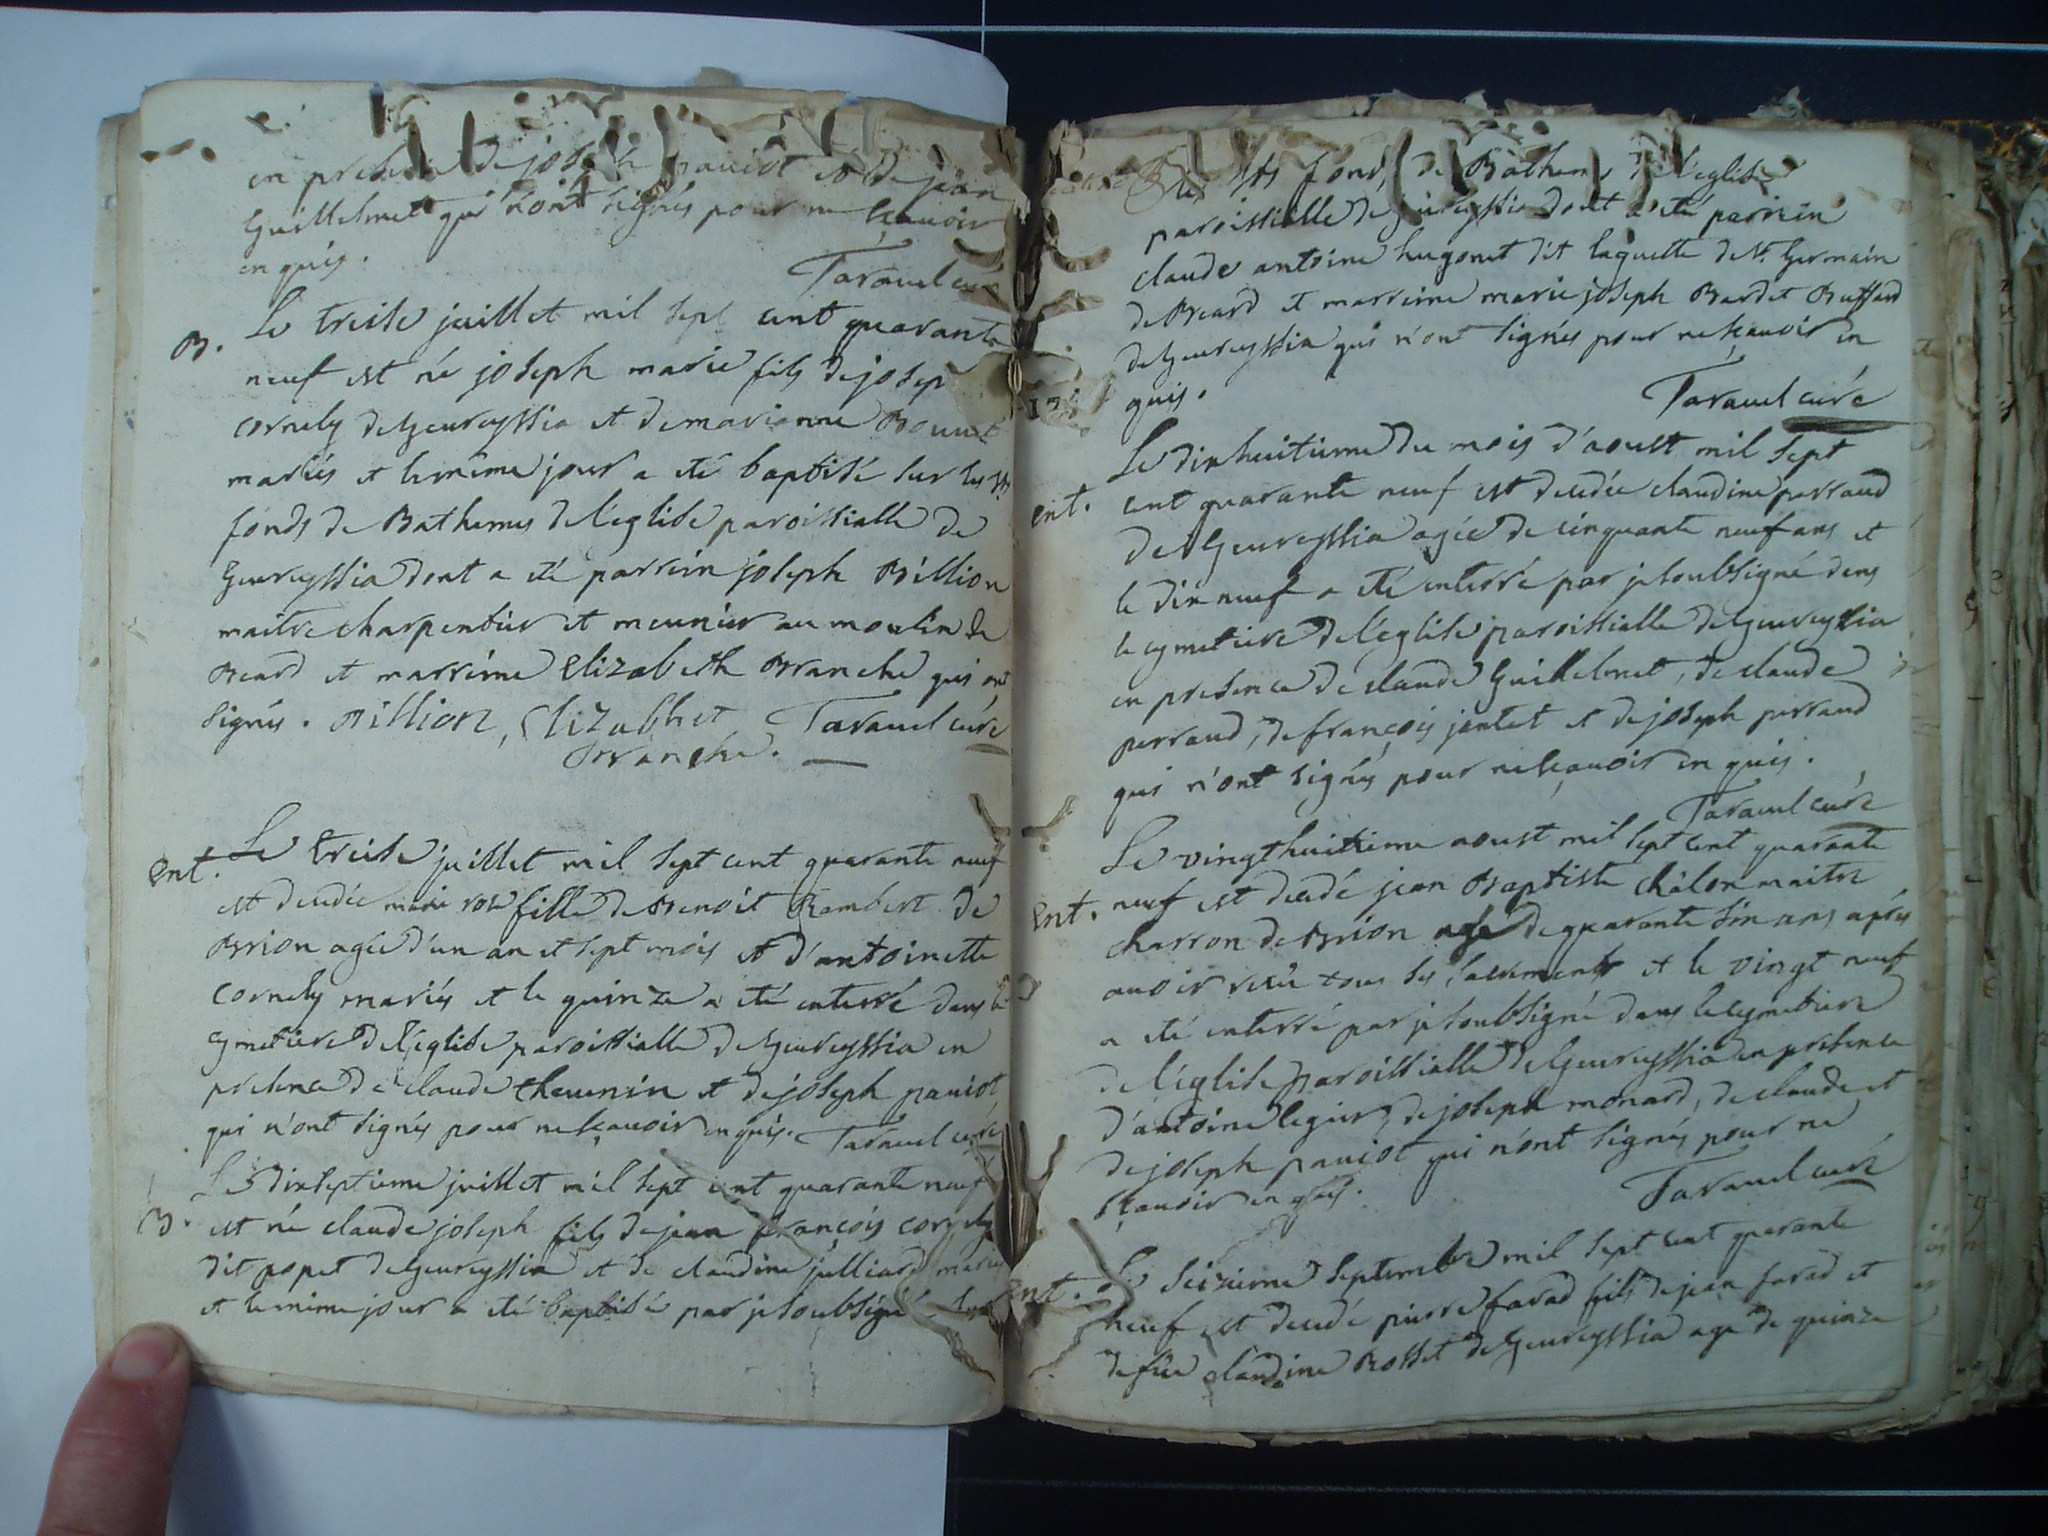 en presence de joseph paviot et de jean
Guillelmet qui n'ont signés pour ne sçavoir
en quis.
Taravel curé
B. Le treise juillet mil sept cent quarante
neuf est né joseph marie fils de josep
cornely de Geureyssia et de marianne Bouvet
mariés et le même jour a eté baptisé sur les sts
fonds de Bathemes de l'eglise paroissialle de
Geureyssia dont a eté parrein joseph Billion
maitre charpentier et meunier au moulin de
Beard et marreine Elizabeth Branche qui ont
signés. Billion, Elizabhet Taravel curé
Branche.
Ent. Le treise juillet mil sept cent quarante neuf
est decedée marie rose fille de Benoit Rambert de
Brion agée d'un an et sept mois et d'antoinette
cornely mariés et le quinze a eté enterré dans le
cymetiere de l'eglise paroissialle de Geureyssia en
presence de claude thevenin et de joseph paviot
qui n'ont signés pour ne sçavoir en quis. Taravel curé
B. Le dixseptieme juillet mil sept cent quarante neuf
est né claude joseph fils de jean françois cornely
dit popet de Geureyssia et de claudine julliard mariés
et le même jour a eté baptisé par je soubsigné sur
les sts fonds de Bathemes de l'eglise
paroissialle de Geureyssia dont a eté parrein
claude antoine hugonet dit laquette de St. Germain
de Beard et marreine marie joseph Bardet Buffard
de Geureyssia qui n'ont signés pour ne sçavoir en
quis.
Taravel curé
Ent. Le dixhuitieme du mois d'aoust mil sept
cent quarante neuf est decedée claudine perraud
de Geureyssia agée de cinquante neuf ans et
le dix neuf a eté enterré par je soubsigné dans
le cymetiere de l'eglise paroissialle de Geureyssia
en presence de claude Guillelmet, de claude
perraud, de françois jantet et de joseph perraud
qui n'ont signés pour ne sçavoir en quis.
Taravel curé
Ent. Le vingthuitieme aoust mil sept cent quarante
neuf est decedé jean Baptiste châlon maitre
charron de Brion agé de quarante six ans après
avoir reçû tous les sacrements et le vingt neuf
a eté enterré par je soubsigné dans le cymetiere
de l'eglise paroissialle de Geureyssia en presence
d'antoine legier, de joseph monard, de claude et
de joseph paviot qui n'ont signés pour ne
sçavoir en quis.
Taravel curé
Ent. Le seizieme septembre mil sept cent quarante
neuf est decedé pierre favad fils de jean favad et
de füe claudine Rosset de Geureyssia age de quinze